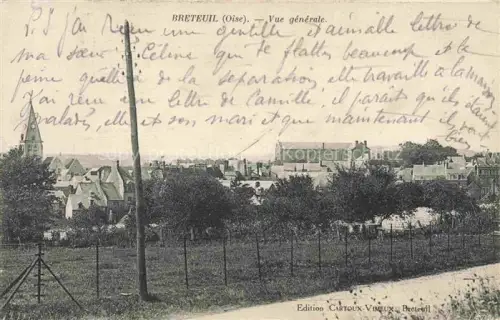 BRETEUIL (Oise). — Vue générale.
P.S. J'ai reçu une gentille et aimable lettre de
ma sœur Céline que te flatte beaucoup et la
peine quelle a de la separation elle travaille à la maison
J'ai reçu une lettre de Camille, il parait qu'ils étaient
malades, elle et son mari et que maintenant il vont
Edition CARTOUX-VIMEUX, Breteuil